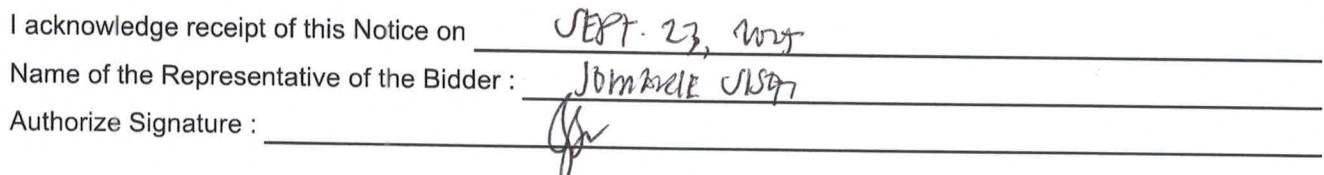 I acknowledge receipt of this Notice on SEPT. 23, 2025
Name of the Representative of the Bidder :
Authorize Signature :